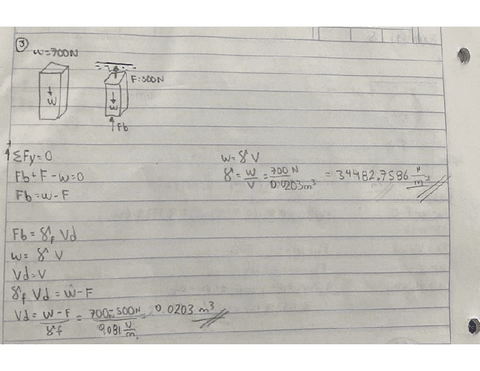 ③
w=700N
F=500N
w
w
Fb
ΣFy=0
Fb+F-w=0
Fb=w-F
w=γV
γ=w/V=700 N/0.0203m³=34482.7586 N/m³
Fb=γf Vd
w=γ V
Vd=V
γf Vd=w-F
Vd=w-F/γf=700N-500N/9.081 N/m³=0.0203 m³